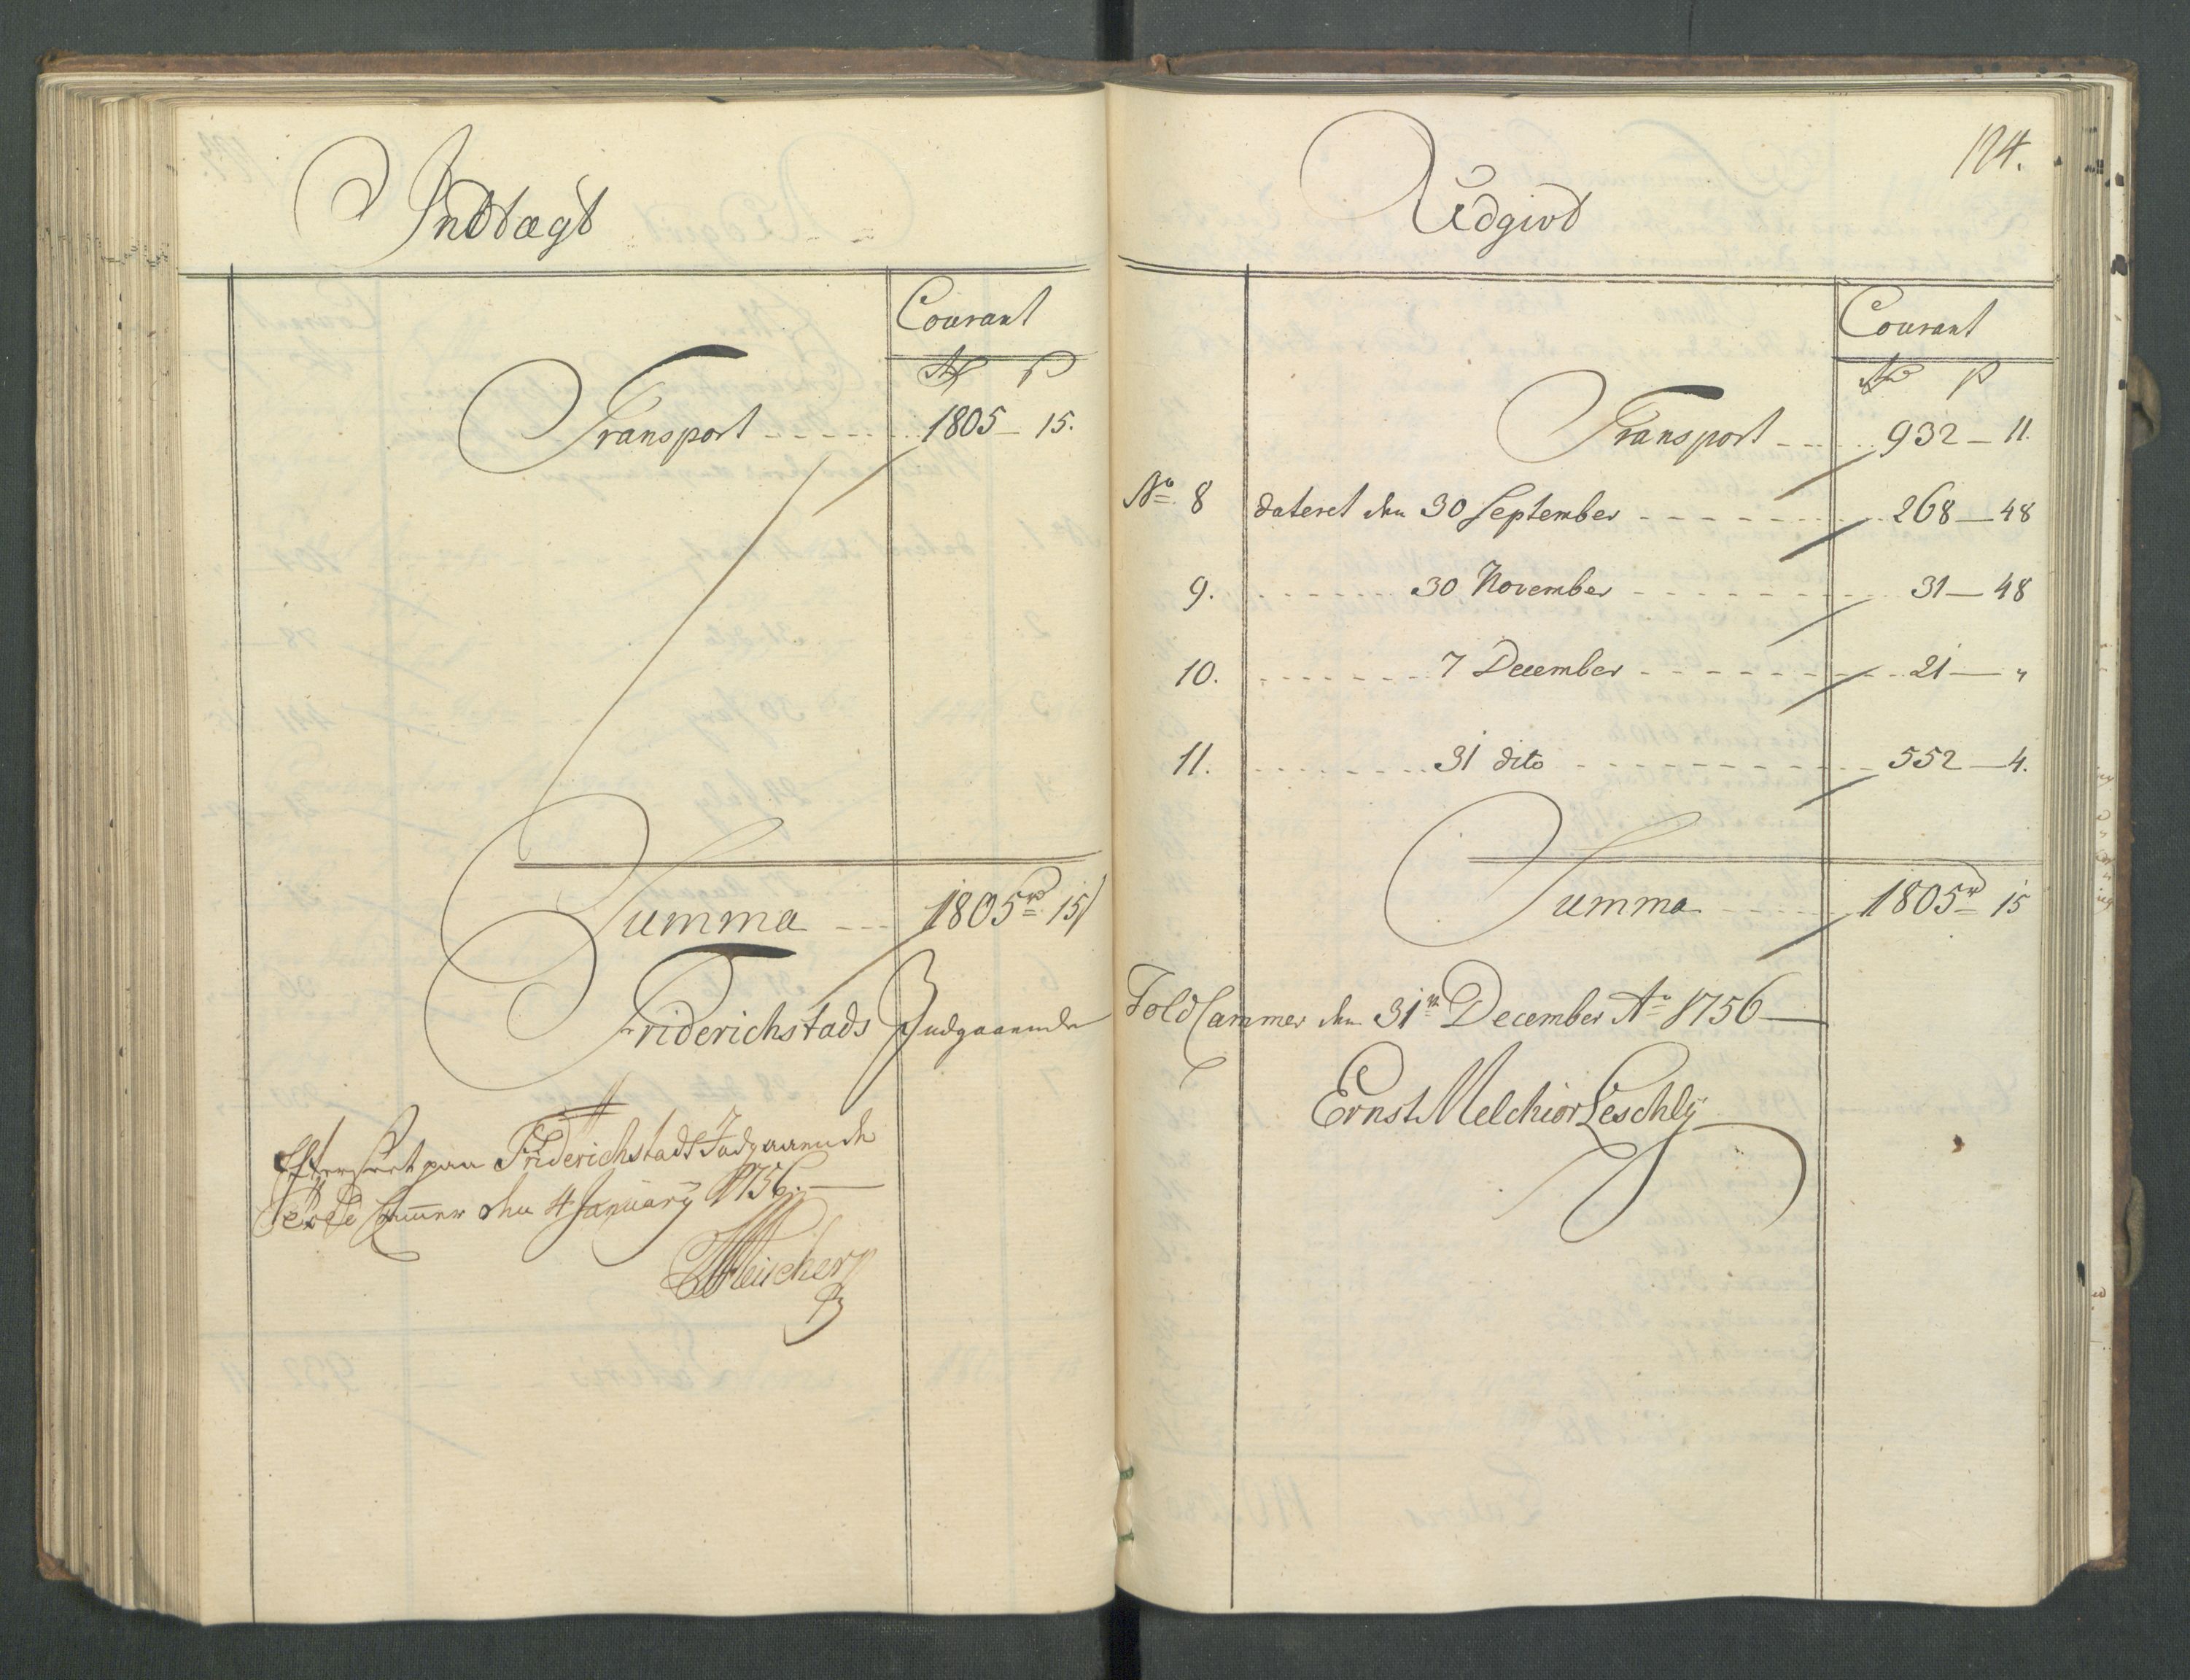 Indtægt
Courant
Rdr ß
Transport - - - - - - 1805 - 15.
Summa - - - 1805 rd 15 ß
Friderichstads Indgaaende
Efterseet paa Friderichstads Indgaaende
Told Cammer den 4 January 1756. —
124.
Udgivt
Courant
Rdr ß
Transport - - - - - 932 - 11.
No. 8 dateret den 30 September - - - - - - - 268 - 48
9. - - - - - - 30 November - - - - - - - 31 - 48
10. - - - - - - 7 December - - - - - - - 21 - "
11. - - - - - - 31 dito - - - - - - - 552 - 4.
Summa - - - - 1805 rd 15
Told Cammer den 31te December Ao 1756 —
Ernst Melchior Leschly